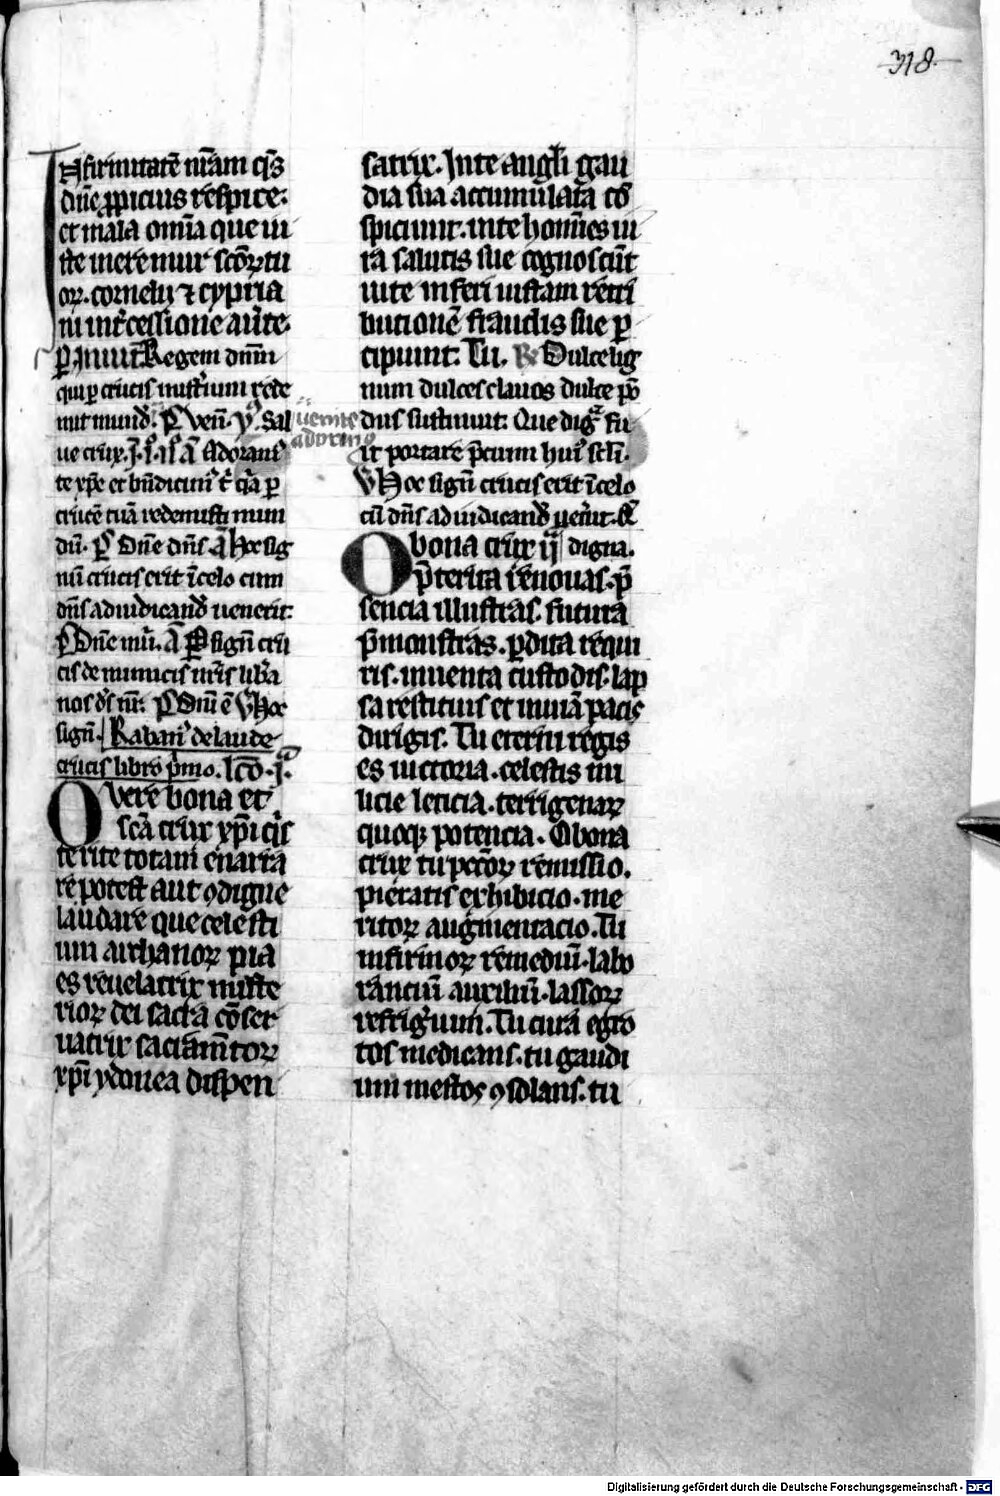 318
Infirmitatē nr̄am qs̄
dn̄e ꝓpicius respice.
et mala omīa que iu
ste meremur sc̄oꝝ tu
oꝝ. cornelii ⁊ cypria
ni int̄cessione au̾te.
Regem dn̄m
qui ꝑ crucis
mit mund̄. Ven̄. Sal
uenite
adoremꝰ
ue crux. Adoram̾
te xp̄e et bn̄dicim̾ t̄ q̄a ꝑ
crucē tuā redemisti mun
dū. Dn̄e dn̄s Hoc sig
nū crucis erit ī celo cum
dn̄s ad iudicand̄ uenerit.
Dn̄e sign̄ cru
cis de inimicis nr̄is lib̾a
nos ds̄ nr̄. Hoc
sign̄. Raban̾ de laude
crucis libro p̾mo. lcō. j.
O vere bona et
sc̄a crux xp̄i q̾s
te rite totam enarra
re potest aut ꝯdigne
laudare que celesti
um archanoꝝ pia
es reuelatrix miste
rioꝝ dei sacra cōser
uatrix sacram̄toꝝ
xp̄i ydonea dispen
satrix. In te angl̄i gau
dia sua accumulata cō
spiciunt. in te homīes iu
ra salutis sue cognoscūt
in te inferi iustam retri
bucionē fraudis sue ꝑ
cipiunt. Tu. Dulce lig
num dulces clauos dulce pō
dus sustinuit. Que dig̾ fu
it portare p̄cium hui̾ sc̄li.
Hoc signū crucis erit ī celo
cū dn̄s ad iudicand̄ uen̾it.
O bona crux digna.
p̄terita renouas. p̄
sencia illustras. futura
p̄monstras. ꝑdita requi
ris. inuenta custodis. lap
sa restituis et in uiā pacis
dirigis. Tu eterni regis
es uictoria. celestis mi
licie leticia. terrigenaꝝ
quoqꝫ potencia. O bona
crux tu pcc̄oꝝ remissio.
pietatis exhibicio. me
ritoꝝ augmentacio. Tu
infirmoꝝ remediū. labo
ranciū auxiliū. lassoꝝ
refrig̾ium. Tu cura egro
tos medicans. tu gaudi
um mestos ꝯsolans. tu
Digitalisierung gefördert durch die Deutsche Forschungsgemeinschaft - DFG